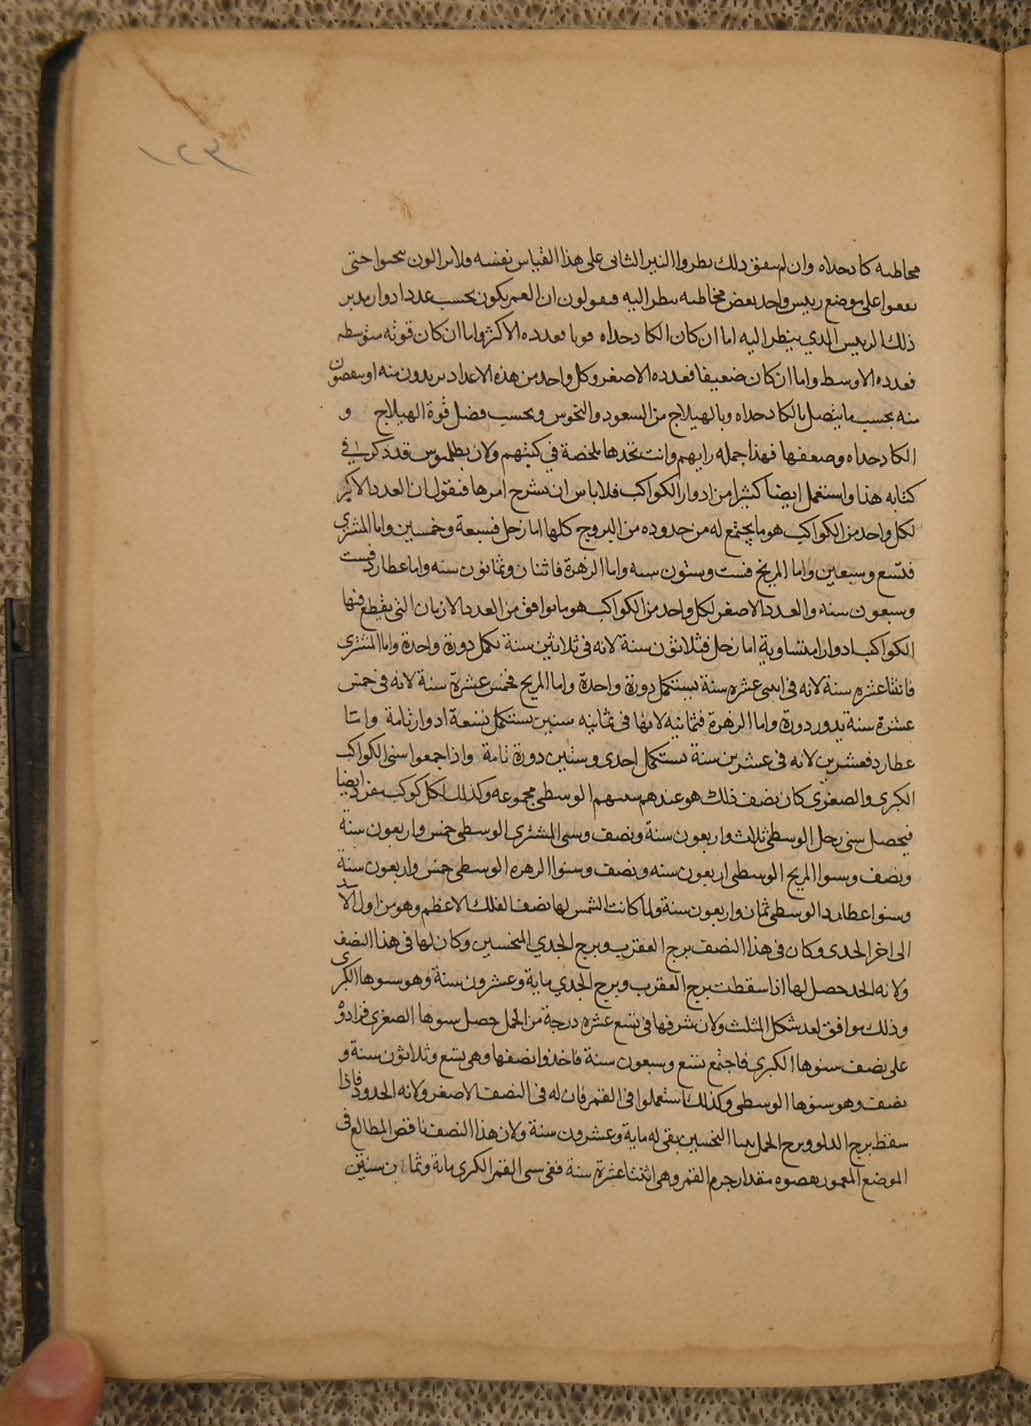 ١٢٣
مخاطبه كادحداه وان لم يتفق ذلك نظروا النير الثانى على هذا القياس نفسه ولا يزالون يمتحنوا حتى
يقعوا على موضع رييس واحد بعض مخاطبه ينظر اليه فيقولون ان العمر يكون بحسب عدد ادوار يدبر
ذلك الرييس الذي ينظر اليه اما ان كان الكادحداه قويا فعدده الاكثر واما ان كان قوته متوسطه
فعدده الاوسط واما ان كان ضعيفا فعدده الاصغر وكل واحد من هذه الاعداد يزيدون منه او ينقصون
منه بحسب ما يتصل بالكادحداه وبالهيلاج من السعود والنحوس وبحسب فضل قوة الهيلاج و
الكادحداه وضعفها فهذا جمله رايهم وانت تجدها ملخصة في كتبهم ولان بطلميوس قد ذكر في
كتابه هذا واستعمل ايضا كثيرا من ادوار الكواكب فلا باس ان نشرح امرها فنقول ان العدد الاكبر
لكل واحد من الكواكب هو ما يجتمع له من حدوده من البروج كلها اما زحل فسبعة وخمسين واما المشترى
فتسع وسبعين واما المريخ فست وستون سنه واما الزهرة فاثنان وثمانون سنه واما عطارد فست
وسبعون سنه والعدد الاصغر لكل واحد من الكواكب هو ما يوافق من العدد الازمان التى يقطع فيها
الكواكب ادوارا متساوية اما زحل فثلاثون سنة لانه فى ثلاثين سنة يكمل دورة واحدة واما المشترى
فاثنتا عشره سنة لانه فى اثنى عشره سنة يستكمل دورة واحدة واما المريخ فخمس عشرة سنة لانه فى خمس
عشرة سنة يدور دورة واما الزهرة فثمانيه لانها فى ثمانيه سنين يستكمل تسعة ادوار تامة واما
عطارد فعشرين لانه فى عشرين سنة يستكمل احدى وستين دورة تامة واذا جمعوا سنى الكواكب
الكبرى والصغرى كان نصف ذلك هو عندهم سنيهم الوسطى مجموعه وكذلك لكل كوكب مفرد ايضا
فيحصل سنى زحل الوسطى ثلاث واربعون سنة ونصف وسنى المشترى الوسطى خمس واربعون سنة
ونصف وسنوا المريخ الوسطى اربعون سنه ونصف وسنوا الزهره الوسطى خمس واربعون سنة
وسنوا عطارد الوسطى ثمان واربعون سنة ولما كانت الشمس لها نصف الفلك الاعظم وهو من اول الاسد
الى اخر الجدى وكان فى هذا النصف برج العقرب وبرج الجدي النحسين وكان لها فى هذا النصف
ولانه الحد حصل لها اذا سقطت برج العقرب وبرج الجدي ماية وعشرون سنة وهو سنوها الكبرى
وذلك موافق لعد شكل المثلث ولان شرفها فى تسع عشره درجة من الحمل حصل سنوها الصغرى فزادوا
على نصف سنوها الكبرى فاجتمع تسع وسبعون سنة فاخذوا نصفها وهى تسع وثلاثون سنة و
نصف وهو سنوها الوسطى وكذلك استعملوا فى القمر فان له فى النصف الاصغر ولانه الحدود فاذا
سقط برج الدلو وبرج الحمل بيتا النحسين بقى له ماية وعشرون سنة ولان هذا النصف ناقص المطالع فى
الموضع المعمور مقدار جرم القمر وهى اثنتا عشرة سنة فبقى سنى القمر الكبرى ماية وثمان سنين